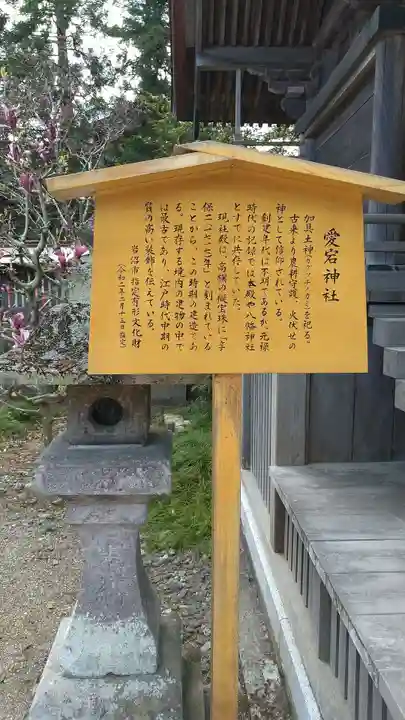 愛宕神社
加具土神(カグツチノカミ)を祀る。
古来より農耕守護、火伏せの
神として信仰されている。
創建年代は不明であるが、元禄
時代の記録では本殿や八幡神社
とすでに共存していた。
現社殿は、高欄の擬宝珠に「享
保二(一七一七)年」と刻まれている
ことから、この時期の建造であ
る。現存する境内の建物の中で
は最古であり、江戸時代中期の
質の高い装飾を伝えている。
岩沼市指定有形文化財
(令和二年二月十三日指定)